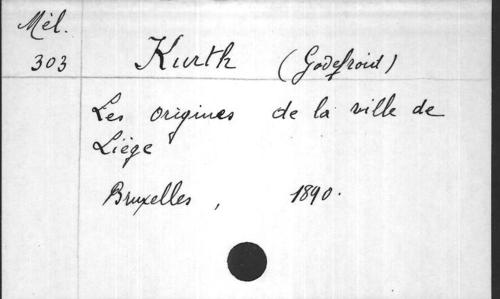 Mél.
303 Kurth (Godefroid)
Les origines de la ville de
Liège
Bruxelles, 1890.